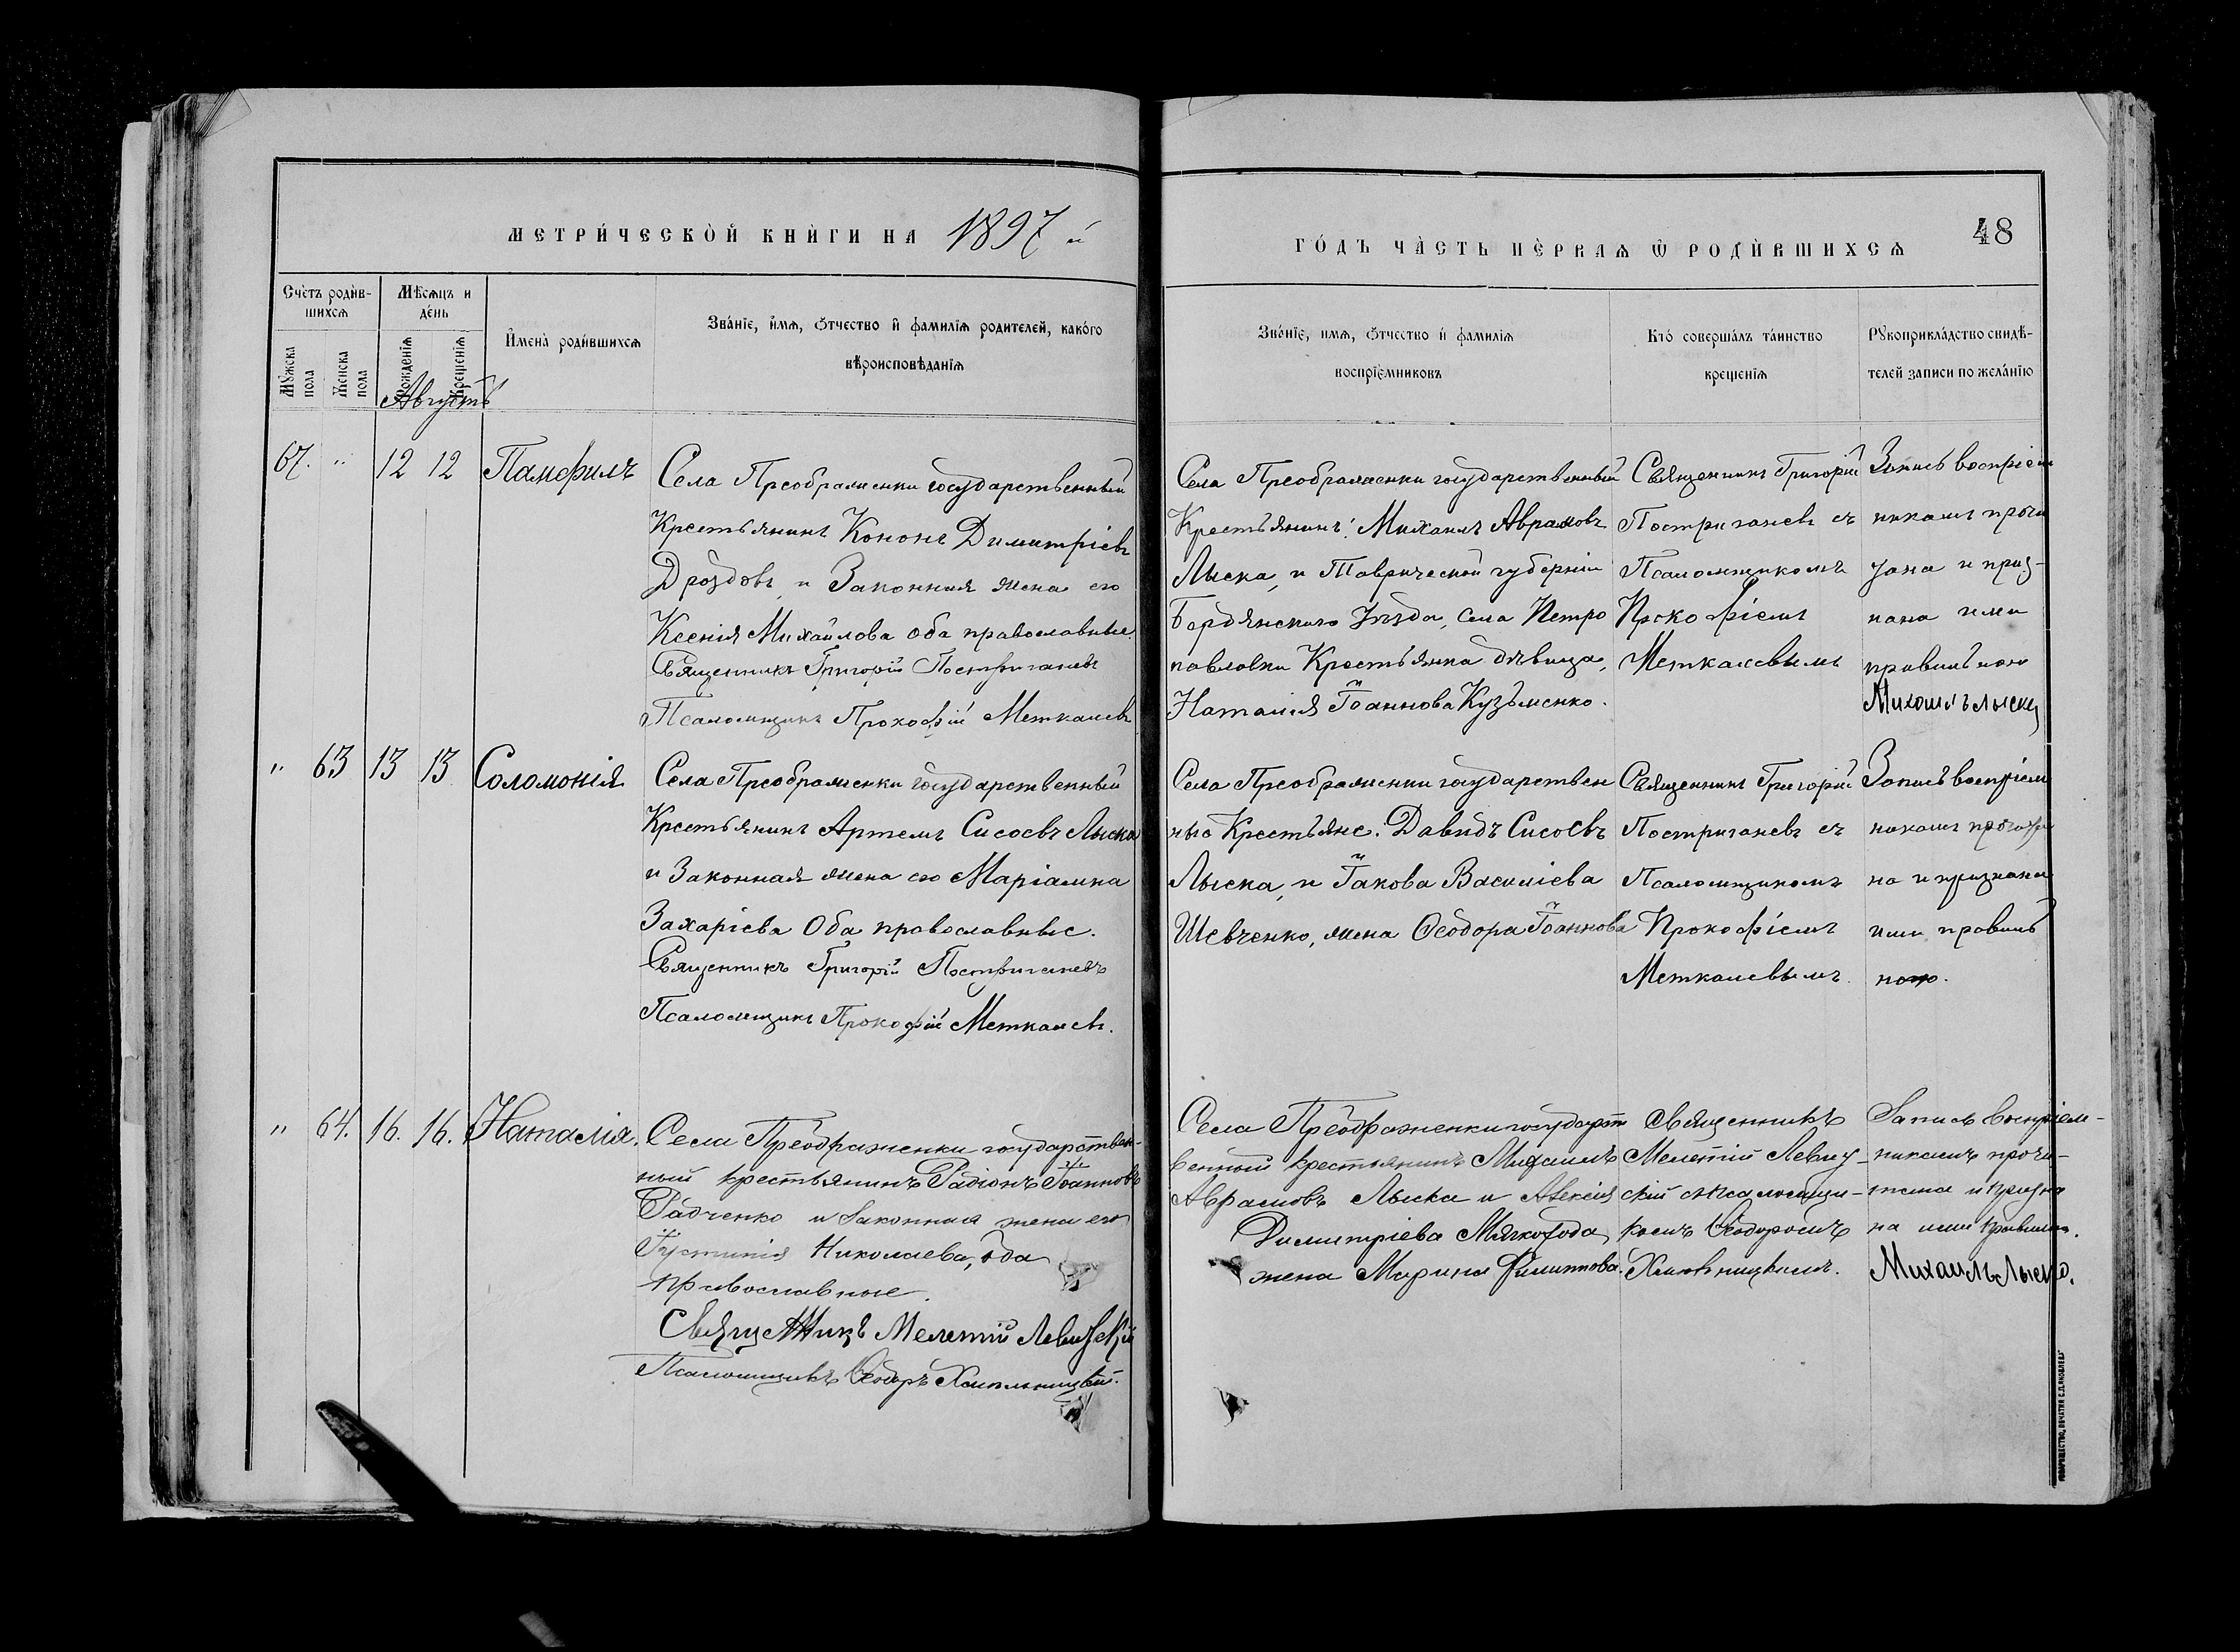 МЕТРИ́ЧЕСКОЙ КНИ́ГИ НА 1897 й
ГО́ДЪ ЧА́СТЬ ПЕ́РВАѦ Ѡ РОДИ́ВШИХСѦ
48
Сче́тъ роди́в-
шихсѧ
Мѣ́сѧцъ и
де́нь
Му́жска
пола
Же́нска
пола
Рожденїѧ
Крещенїѧ
Августъ
И҆мена̀ роди́вшихсѧ
Зва́нїе, и҆́мѧ, ѻ҆́тчество и҆ фамилїѧ родителей, како́го
вѣроисповѣданїѧ
Зва́нїе, имѧ, ѻ҆́тчество и҆ фамилїѧ
воспрїе́мниковъ
Кто́ соверша́лъ та́инство
крещенїѧ
Рꙋкоприкла́дство свидѣ́-
телей записи по жела́нїю
67. " 12 12 Памфилъ
Села Преображенки государственный
Крестьянинъ Кононъ Димитріевъ
Дроздовъ, и Законная жена его
Ксенія Михайлова оба православные.
Священникъ Григорій Постриганевъ
Псаломщикъ Прокофій Меткалевъ
Села Преображенки государственный
Крестьянинъ: Михаилъ Аврамовъ
Лыска, и Таврической губерніи
Бердянскаго Уѣзда, села Петро
павловки Крестьянка дѣвица,
Наталія Іоаннова Кузьменко.
Священникъ Григорій
Постриганевъ съ
Псаломщикомъ
Прокофіемъ
Меткалевымъ
Запись воспріем
никамъ прочи
тана и приз-
нана ими
правильною
Михаилъ Лыска
" 63 13 13 Соломонія
Села Преображенки государственный
Крестьянинъ Артемъ Сисоевъ Лыска
и Законная жена его Маріамна
Захаріева Оба православные.
Священникъ Григорій Постриганевъ
Псаломщикъ Прокофій Меткалевъ.
Села Преображенки государствен
ные Крестьяне: Давидъ Сисоевъ
Лыска, и Іакова Василіева
Шевченко, жена Ѳеодора Іоаннова
Священникъ Григорій
Постриганевъ съ
Псаломщикомъ
Прокофіемъ
Меткалевымъ.
Запись воспріем
никамъ прочита
на и признана
ими правиль
ною.
" 64. 16. 16. Наталія.
Села Преображенки государствен-
ный крестьянинъ Радіонъ Іоанновъ
Радченко и Законная жена его
Іустинія Николаева, оба
православные.
Священникъ Мелетій Левицкій
Псаломщикъ Ѳеодоръ Хмельницкій.
Села Преображенки государст
венный крестьянинъ Михаилъ
Аврамовъ Лыска и Алексія
Димитріева Мягкохода
жена Марина Филиппова.
Священникъ
Мелетій Левиц-
кій съ псаломщи-
комъ Ѳеодоромъ
Хмельницкимъ.
Запись воспріем-
никамъ прочи-
тана и призна
на ими правильн.
Михаилъ Лыска.